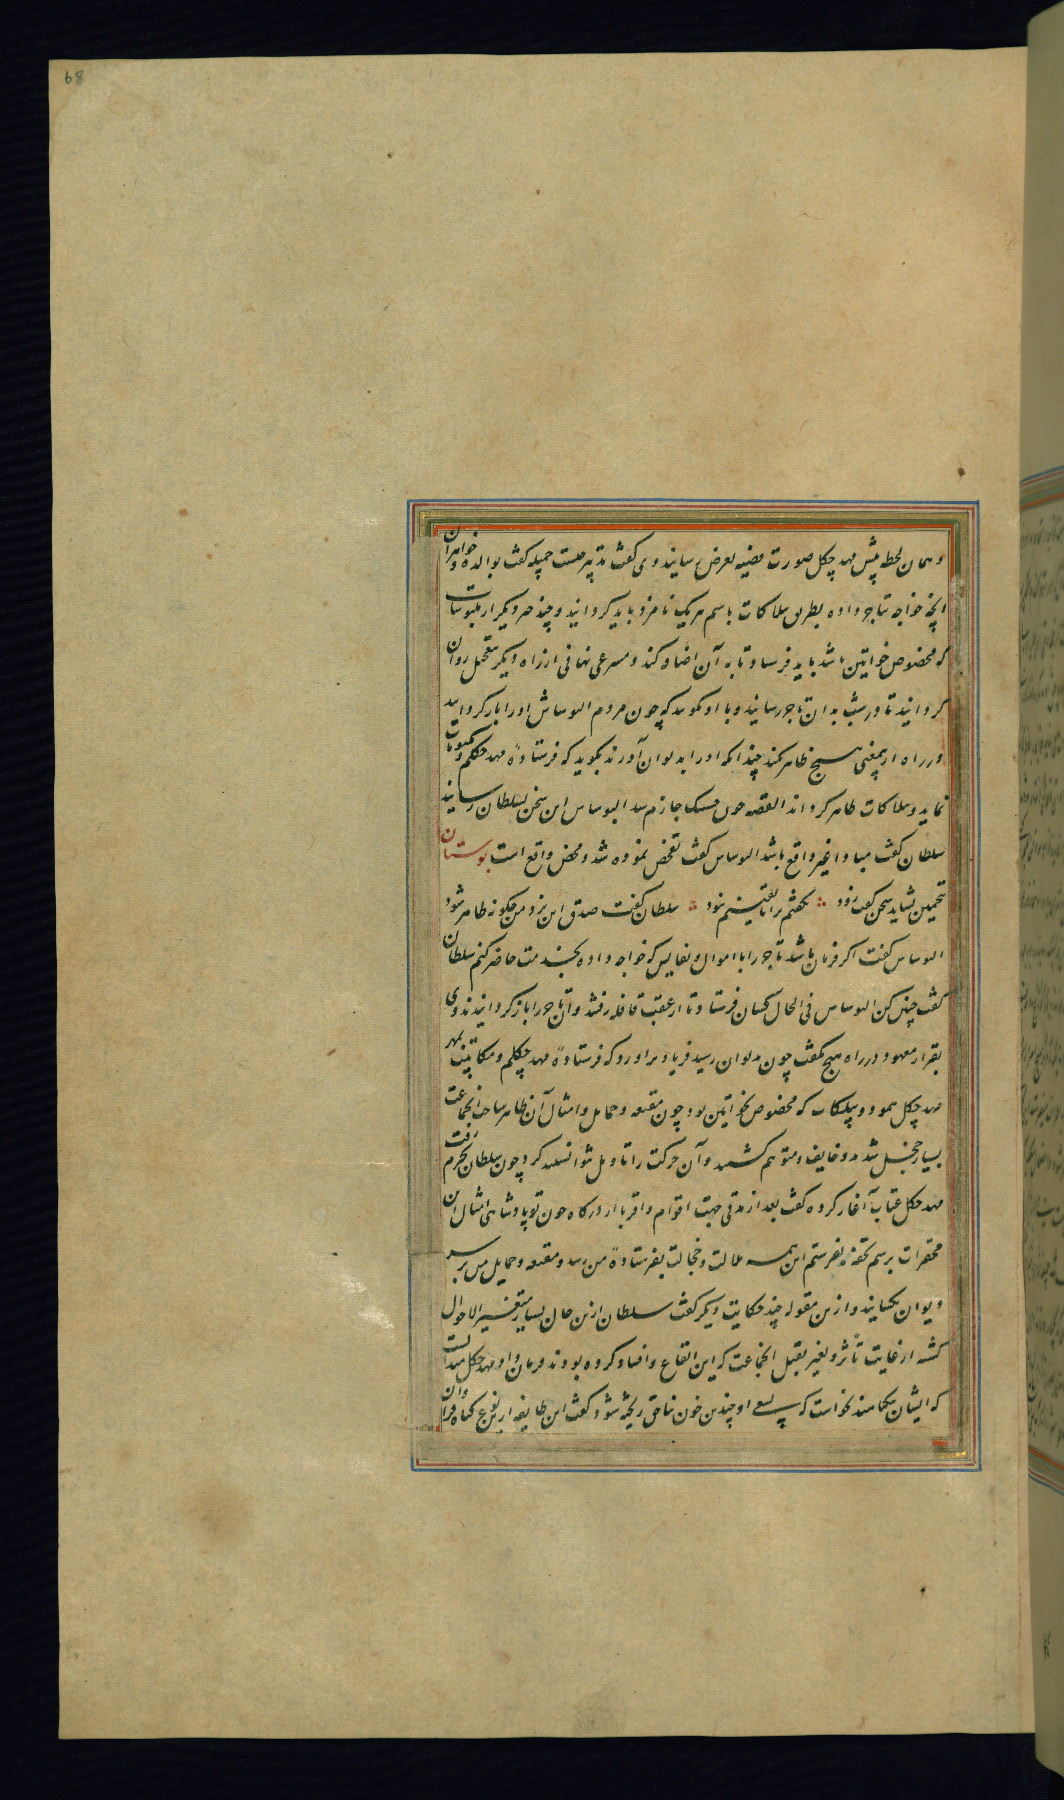 68
و همان لحظه پیش مهد چکل صورت قضیه بعرض رسانید وی کفت تدبیر چیست جمیله کفت بوالده و خواهران
انچه خواجه بتاجر داده بطریق بیلاکات باسم هریک نامزد باید کردانید و چیزهای دیکر از ملبوسات
که مخصوص خواتین باشد باید فرستاد تا به آن اضافه کند و مسرعی نهانی از راه دیکر بتعجیل روان
کردانید تا در شب به ان تاجر رسانید و با او کوید که چون مردم التونتاش او را باز کردانید
در راه ازین معنی هیچ ظاهر نکند چندانکه او را بدیوان آورند بکوید که فرستادهٔ مهد چکلم و مکتوبات
نماید و بیلاکات ظاهر کرداند القصه چون حسنک جازم شد التونتاش این سخن بسلطان رسانید
سلطان کفت مبادا غیر واقع باشد التونتاش کفت تفحص نموده شد و محض واقع است بوستان
تخمین نشاید سخن کفت زود نکفتم ترا تا یقینم نبود سلطان کفت صدق این نزد من چکونه ظاهر شود
التونتاش کفت اکر فرمان باشد تاجر را با اموال و نفایس که خواجه داده بخدمت حاضر کنم سلطان
کفت چنین کن التونتاش فی الحال کسان فرستاد تا از عقب قافله رفتند و آن تاجر را باز کردانیدند وی
بقرار معهود در راه هیچ نکفت چون بدیوان رسید فریاد براورد که فرستادهٔ مهد چکلم و مکاتیب بمهر
مهد چکل نمود و بیلکات که مخصوص بخواتین بود چون مقنعه و حمایل و امثال آن ظاهر ساخت انجماعت
بسیار خجل شدند و خایف و متوهم کشتند و آن حرکت را تاویل نتوانستند کرد چون سلطان بحرم رفت
مهد چکل عتاب آغاز کرده کفت بعد از مدتی جهت اقوام و اقربا از درکاه چون تو پادشاهی امثال این
محقرات برسم تحفه نفرستم این همه ملالت و خجالت بفرستادهٔ من رسد و مقنعه و حمایل من بر سر
دیوان بکشایند و ازین مقوله چند حکایت دیکر کفت سلطان ازین حال بسیار متغیر الاحوال
کشته از غایت تأثر و تغیر بقتل انجماعت که این انقاع و افساد کرده بودند فرمان داد و مهد چکل میدانست
که ایشان بیکناهند نخواست که بسعی او چندین خون ناحق ریخته شود کفت این طایفه ازین نوع کناه فراوان